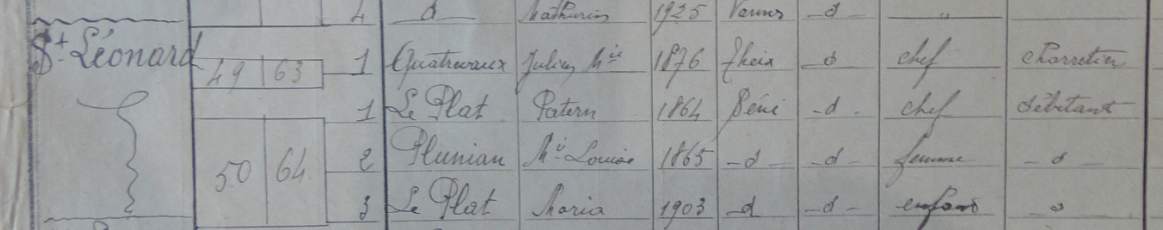 4 d Mathurin 1925 Vannes d "
St Léonard 49 63 1 Quatrevaux Julien Mie 1876 Theix d chef charretier
1 Le Plat Patern 1864 Séné d chef débitant
50 64 2 Plunian Mie Louise 1865 d d femme d
3 Le Plat Maria 1903 d d enfant d